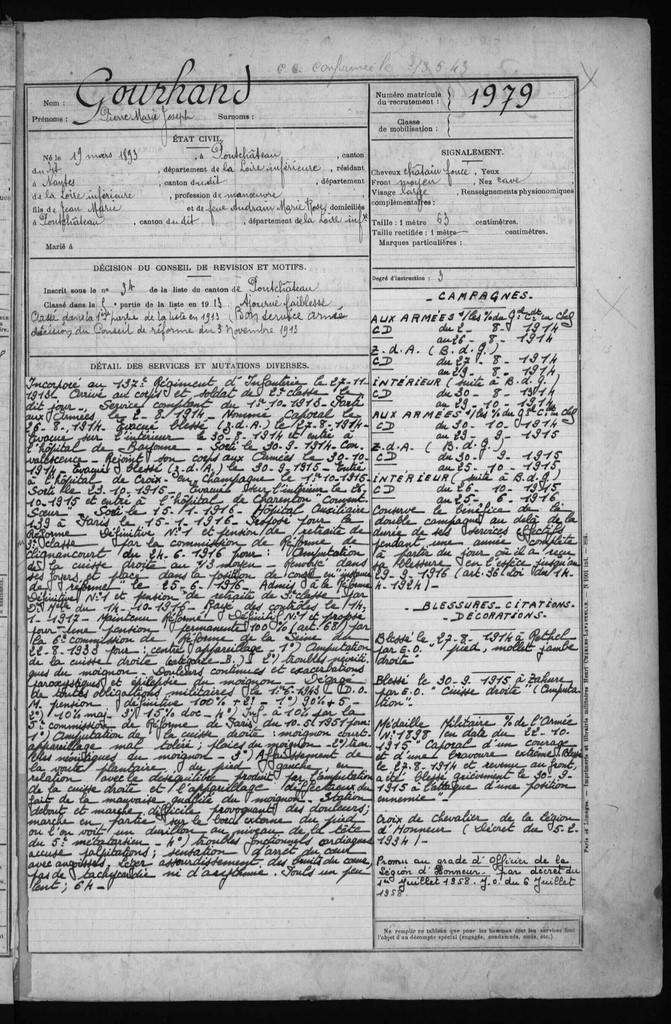 C.C. confirmée le 3.5.43
Nom : Gourhand
Prénoms : Pierre Marie Joseph Surnoms :
Numéro matricule du recrutement : 1979
Classe de mobilisation :
ÉTAT CIVIL.
Né le 19 mars 1893, à Pontchâteau, canton
du dit, département de la Loire inférieure, résidant
à Nantes, canton du dit, département
de la Loire inférieure, profession de manœuvre
fils de Jean Marie et de feue Audrain Marie Rose domiciliés
à Pontchâteau, canton du dit, département de la Loire infre
Marié à
SIGNALEMENT.
Cheveux châtain foncé, Yeux
Front moyen, Nez cave
Visage large, Renseignements physionomiques
complémentaires :
Taille : 1 mètre 63 centimètres.
Taille rectifiée : 1 mètre centimètres.
Marques particulières :
Degré d'instruction : 3
DÉCISION DU CONSEIL DE REVISION ET MOTIFS.
Inscrit sous le no 34 de la liste du canton de Pontchâteau
Classé dans la 2 partie de la liste en 1913 Ajourné faiblesse
Classé dans la 1re partie de la liste en 1913 Bon service armé
décision du Conseil de réforme du 3 Novembre 1913
DÉTAIL DES SERVICES ET MUTATIONS DIVERSES.
Incorporé au 137e Régiment d'Infanterie le 27-11-
1913. Arrivé au corps et soldat de 2e classe le
dit jour. Service comptant du 1er-10-1913. Parti
aux Armées le 2-8-1914. Nommé Caporal le
26-8-1914. Evacué blessé (Z.d.A.) le 27-8-1914.
Evacué sur l'intérieur le 30-8-1914 et entré à
l'hôpital de Bayonne. Sorti le 30-9-1914. Con-
valescence. Rejoint son corps aux Armées le 30-10-
1914. Evacué blessé (Z.d.A.) le 30-9-1915. Entré
à l'hôpital de Croix en Champagne le 1er-10-1915.
Sorti le 23-10-1915. Evacué sur l'intérieur le 26-
10-1915 et entré à l'hôpital de Charenton Couvent
Sœur. Sorti le 15-1-1916. Hôpital Auxiliaire
139 à Paris le 15-1-1916. Proposé pour la
Réforme Définitive No 1 et pension de retraite de
3e classe par la commission de Réforme de
Clignancourt du 24-6-1916 pour : "Amputation
de la cuisse droite au 1/3 moyen". Renvoyé dans
ses foyers et placé dans la position de congé en instance
de réforme le 25-6-1916. Admis à la Réforme
Définitive No 1 et pension de retraite de 3e classe par
D. Mlle du 14-10-1916. Rayé des contrôles le 14-
1-1917. Maintenu Réformé Définitif No 1 et proposé
pour une pension permanente 100 % (art 68) par
la 6e commission de Réforme de la Seine du
22-8-1933 pour : centre appareillage 1o) Amputation
de la cuisse droite 2o) troubles névriti-
ques du moignon. Douleurs continues et exacerbations
paroxystiques et épilepsie du moignon. Dégagé
de toutes obligations militaires le 1er-6-1943. D.O.
M. pension définitive 100 % + 21 - 1o) 90% + 5 -
2o) 10% maj. 3o) 15% doc - 4o) Inf. à 10% par la
5e commission de Réforme de Paris du 10-5-1951 pour :
1o) Amputation de la cuisse droite : moignon court
appareillage mal toléré ; plaies du moignon - 2o) trou-
bles névritiques du moignon - 3o) Affaissement de
la voûte plantaire du pied gauche en
relation avec le déséquilibre produit par l'amputation
de la cuisse droite et l'appareillage défectueux du
fait de la mauvaise qualité du moignon. Station
debout et marche difficile provoquant des douleurs ;
marche en partie sur le bord externe du pied
où l'on voit un durillon au niveau de la tête
du 5e métatarsien - 4o) troubles fonctionnels cardiaques
accuse palpitations ; sensation d'arrêt du cœur
avec angoisses. Léger assourdissement des bruits du cœur,
pas de tachycardie ni d'arythmie. Pouls un peu
lent ; 64 -
- CAMPAGNES -
AUX ARMÉES
CD du 2 - 8 - 1914
au 26 - 8 - 1914
Z.d.A. (B.d.G.)
CD du 27 - 8 - 1914
au 29 - 8 - 1914
INTÉRIEUR (suite à B.d.G.)
CD du 30 - 8 - 1914
au 29 - 10 - 1914
AUX ARMÉES
CD du 30 - 10 - 1914
au 29 - 9 - 1915
Z.d.A. (B.d.G.)
CD du 30 - 9 - 1915
au 25 - 10 - 1915
INTÉRIEUR (suite à B.d.G.)
CD du 26 - 10 - 1915
au 25 - 6 - 1916
Conserve le bénéfice de la
double campagne au delà de la
durée de ses services effectifs
pendant une année complète
à partir du jour où il a reçu
sa blessure en l'espèce jusqu'au
29-9-1916 (art. 36 Loi du 14-
4-1924) -
- BLESSURES - CITATIONS -
- DÉCORATIONS -
Blessé le 27-8-1914 à Rethel
par E.O. "pied, mollet jambe
droite"
Blessé le 30-9-1915 à Tahure
par E.O. "Cuisse droite" (Amputa-
tion"
Médaille Militaire % de l'Armée
No 1898 en date du 22-10-
1915 "Caporal d'un courage
et d'une bravoure extrême. Blessé
le 27-8-1914 et revenu au front,
a été blessé grièvement le 30-9-
1915 à l'attaque d'une position
ennemie"
Croix de chevalier de la légion
d'Honneur (Décret du 5-2-
1934) -
Promu au grade d'Officier de la
Légion d'Honneur par décret du
1er Juillet 1958. J.O. du 6 Juillet
1958.
Ne remplir ce tableau que pour les hommes dont les services font
l'objet d'un décompte spécial (engagés, condamnés, omis, etc.)
Paris et Limoges. — Imprimerie et librairie militaires Henri CHARLES-LAVAUZELLE.